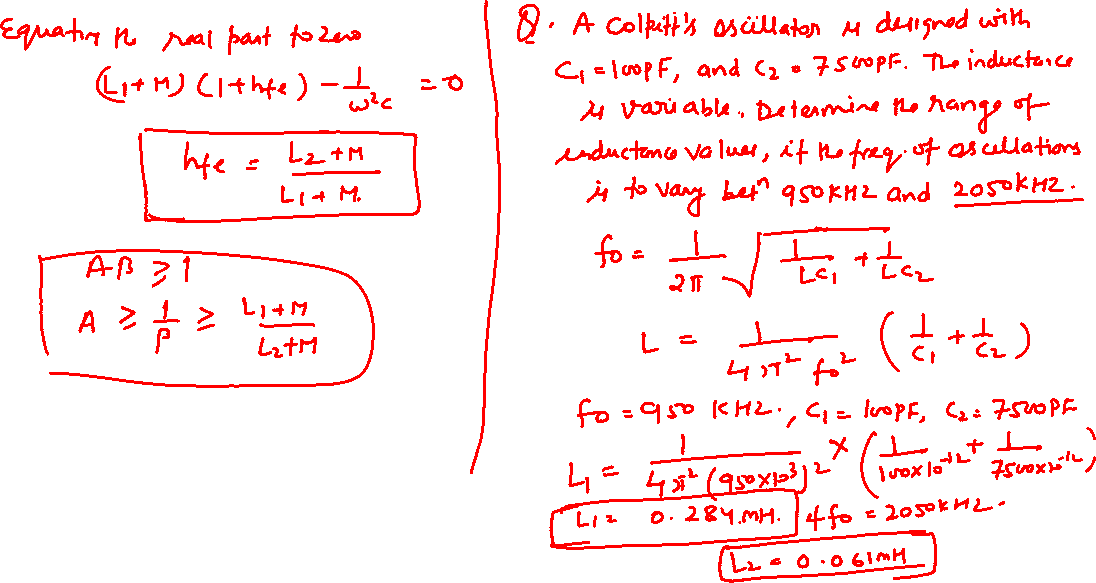 Equating the real part to zero
(L₁+M) (1+hfe) - 1/ω²c = 0
hfe = L₂+M / L₁+M.
Aβ ≥ 1
A ≥ 1/β ≥ L₁+M / L₂+M
Q. A Colpitt's oscillator is designed with
C₁ = 100PF, and C₂ = 7500PF. The inductance
is variable. Determine the range of
inductance values, if the freq. of oscillations
is to vary betⁿ 950KHZ and 2050KHZ.
fo = 1/2π √(1/LC₁ + 1/LC₂)
L = 1/4π² fo² (1/C₁ + 1/C₂)
fo = 950 KHZ., C₁ = 100PF, C₂ = 7500PF
L₁ = 1/4π² (950×10³)² × (1/100×10⁻¹² + 1/7500×10⁻¹²)
L₁ = 0.284.MH. & fo = 2050KHZ.
L₂ = 0.061MH